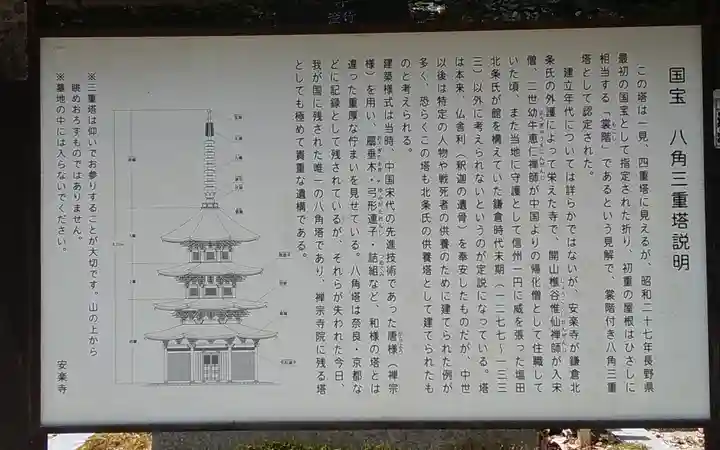 国宝 八角三重塔説明
この塔は一見、四重塔に見えるが、昭和二十七年長野県
最初の国宝として指定された折り、初重の屋根はひさしに
相当する「裳階」であるという見解で、裳階付き八角三重
塔として認定された。
建立年代については詳らかではないが、安楽寺が鎌倉北
条氏の外護によって栄えた寺で、開山樵谷惟仙禅師が入宋
僧、二世幼牛恵仁禅師が中国よりの帰化僧として住職して
いた頃、また当地に守護として信州一円に威を張った塩田
北条氏が館を構えていた鎌倉時代末期(一二七七~一三三
三)以外に考えられないというのが定説になっている。塔
は本来、仏舎利(釈迦の遺骨)を奉安したものだが、中世
以後は特定の人物や戦死者の供養のために建てられた例が
多く、恐らくこの塔も北条氏の供養塔として建てられたも
のと考えられる。
建築様式は当時、中国宋代の先進技術であった唐様(禅宗
様)を用い、扇垂木・弓形連子・詰組など、和様の塔とは
違った重厚な佇まいを見せている。八角塔は奈良・京都な
どに記録として残されているが、それらが失われた今日、
我が国に残された唯一の八角塔であり、禅宗寺院に残る塔
としても極めて貴重な遺構である。
※三重塔は仰いでお参りすることが大切です。山の上から
眺めおろすものではありません。
※墓地の中には入らないでください。
安楽寺